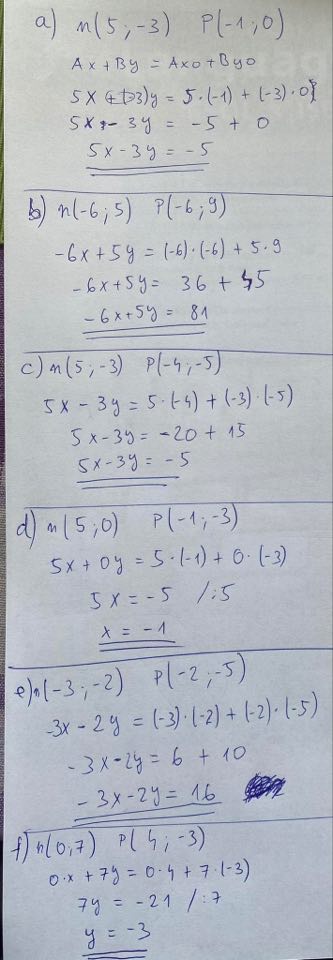 a) n(5;-3) P(-1;0)
Ax+By = Ax0+By0
5x+(-3)y = 5·(-1)+(-3)·0
5x - 3y = -5 + 0
5x-3y = -5
b) n(-6;5) P(-6;9)
-6x+5y = (-6)·(-6)+5·9
-6x+5y = 36 + 45
-6x+5y = 81
c) n(5;-3) P(-4;-5)
5x - 3y = 5·(-4)+(-3)·(-5)
5x-3y = -20 + 15
5x-3y = -5
d) n(5;0) P(-1;-3)
5x+0y = 5·(-1)+0·(-3)
5x = -5 /:5
x = -1
e) n(-3;-2) P(-2;-5)
-3x-2y = (-3)·(-2)+(-2)·(-5)
-3x-2y = 6 + 10
-3x-2y = 16
f) n(0,7) P(4;-3)
0·x + 7y = 0·4+7·(-3)
7y = -21 /:7
y = -3